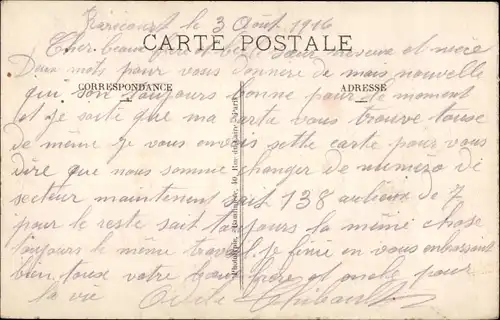 Rarécourt le 3 Août 1916
Cher beau frère et belle sœur neveux et nièce
CARTE POSTALE
Deux mots pour vous donnere de mais nouvelle
qui son toujours bonne pour le moment
CORRESPONDANCE
ADRESSE
et je soite que ma carte vous trouve touse
de même je vous envois sette carte pour vous
dire que nous somme changer de numéro de
secteur maintenent sait 138 aulieux de 7
pour le reste sait toujours la même chose
toujours le même travail je finie en vous embrassant
bien touse votre beau frère et oncle pour
la vie Thibault